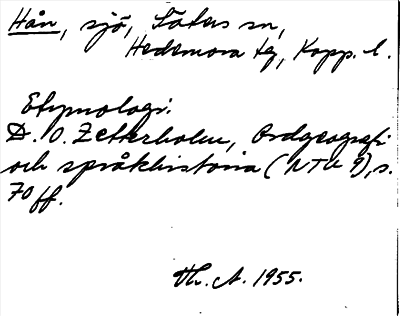 Hån, sjö, Säters sn,
Hedemora tg, Kopp. l.
Etymologi:
D. O. Zetterholm, Ordgeografi
och språkhistoria (NTU 9), s.
70 ff.
Th. A. 1955.